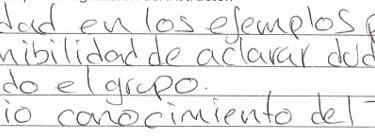 dad en los ejemplos
nibilidad de aclarar dud
do el grupo.
io conocimiento del